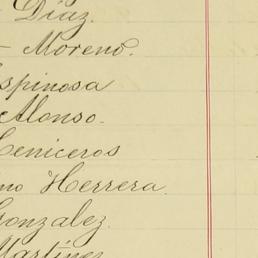 Díaz.
- Moreno.
spinosa
Alonso.
Ceniceros
no Herrera.
Gonzalez.
Martínez